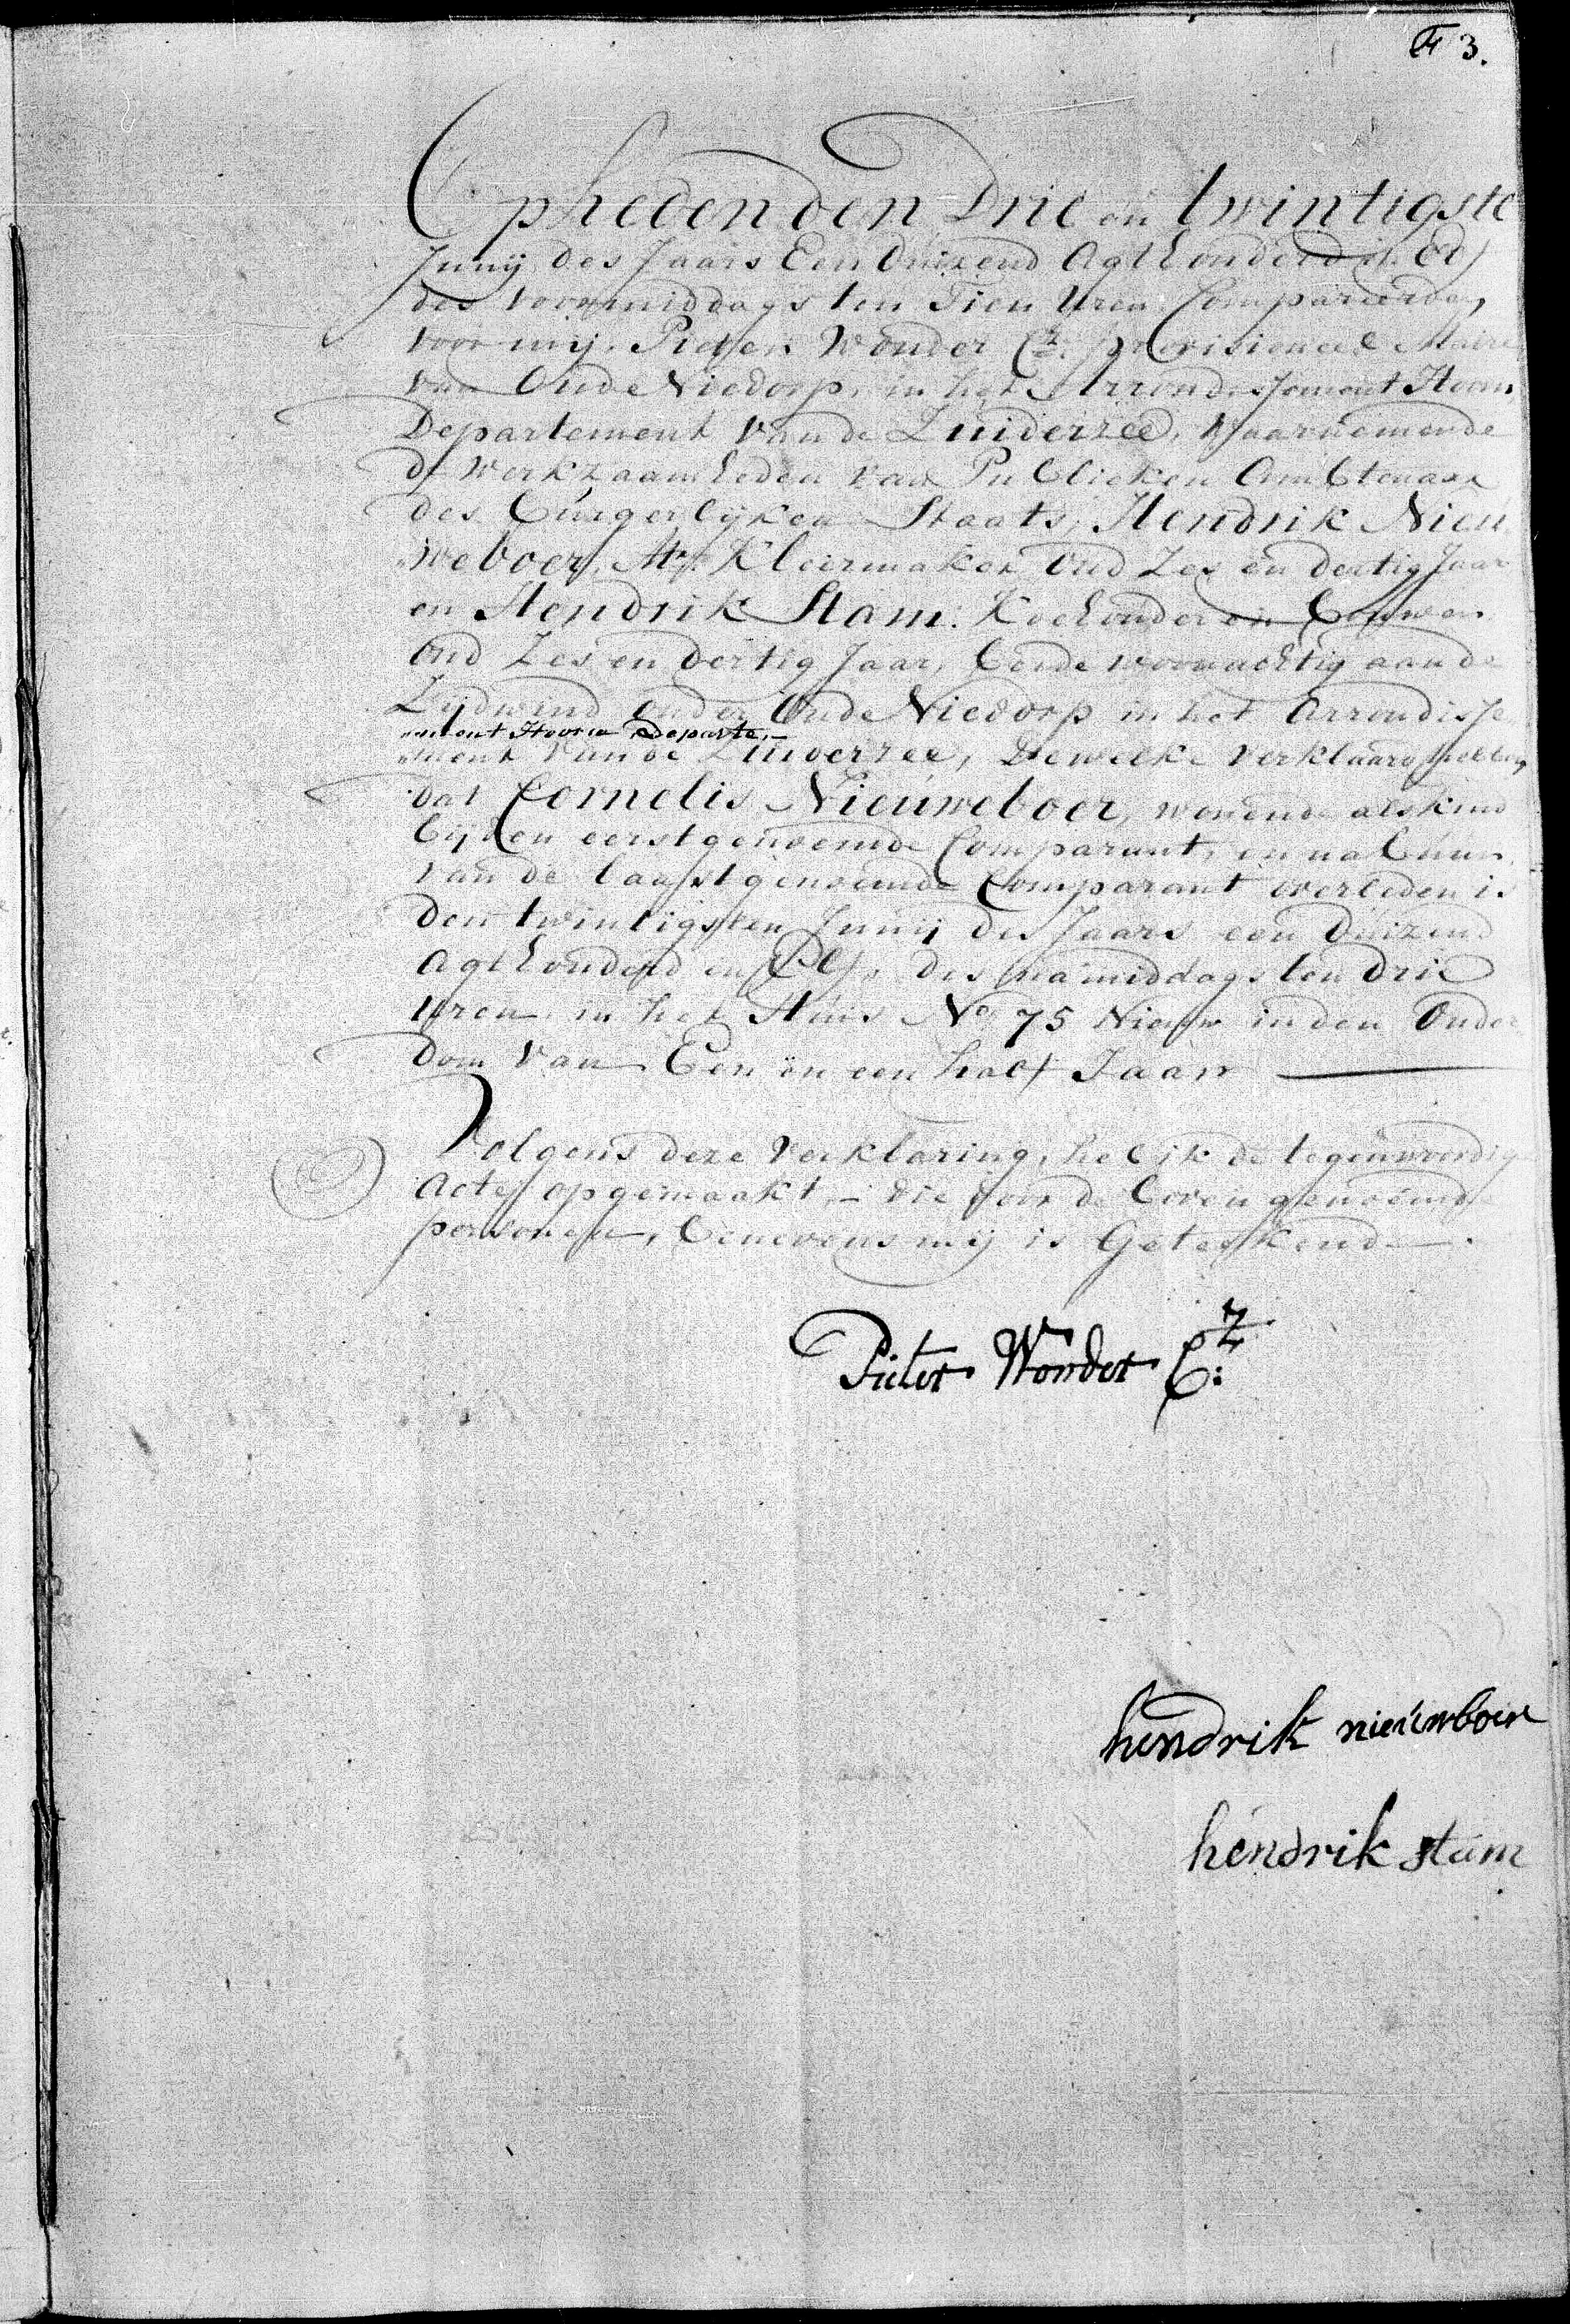 F 3.
Op heden den Drie en twintigste
Junij des Jaars Een duizend Agthonderd en Elf
des voormiddags ten Tien Uren Compareerden
voor mij. Pieter Wonder Cz. provisioneel Maire
van Oude Niedorp, in het Arrondissement Hoorn
Departement van de Zuiderzee, Waarnemende
de werkzaamheden van Publieken Ambtenaar
des Burgerlijken Staats, Hendrik Nieu
weboer, Mr. Kleermaker Oud Zes en dertig Jaar
en Hendrik Stam. Koehouder en Bouwer
Oud Zes en dertig Jaar, beide woonachtig aan de
Zijdwind onder Oude Niedorp in het Arrondisse
ment Hoorn Departe-
ment van de Zuiderzee, Dewelke verklaard hebben,
dat Cornelis Nieuweboer, wonende als kind
bij den eerstgenoemde Comparant, en nabuur
van de laatstgenoemde Comparant overleden is
den twintigsten Junij des Jaars een duizend
Agthonderd en Elf, des namiddags ten drie
Uren in het Huis No 75 Nieuw in den Ouder
dom van Een en een half Jaar
Volgens deze verklaring, heb ik de tegenwoordige
Acte opgemaakt, - die door de bovengenoemde
personen, benevens mij is Geteekend.
Pieter Wonder C:z
hendrik nieuwboer
hendrik stam